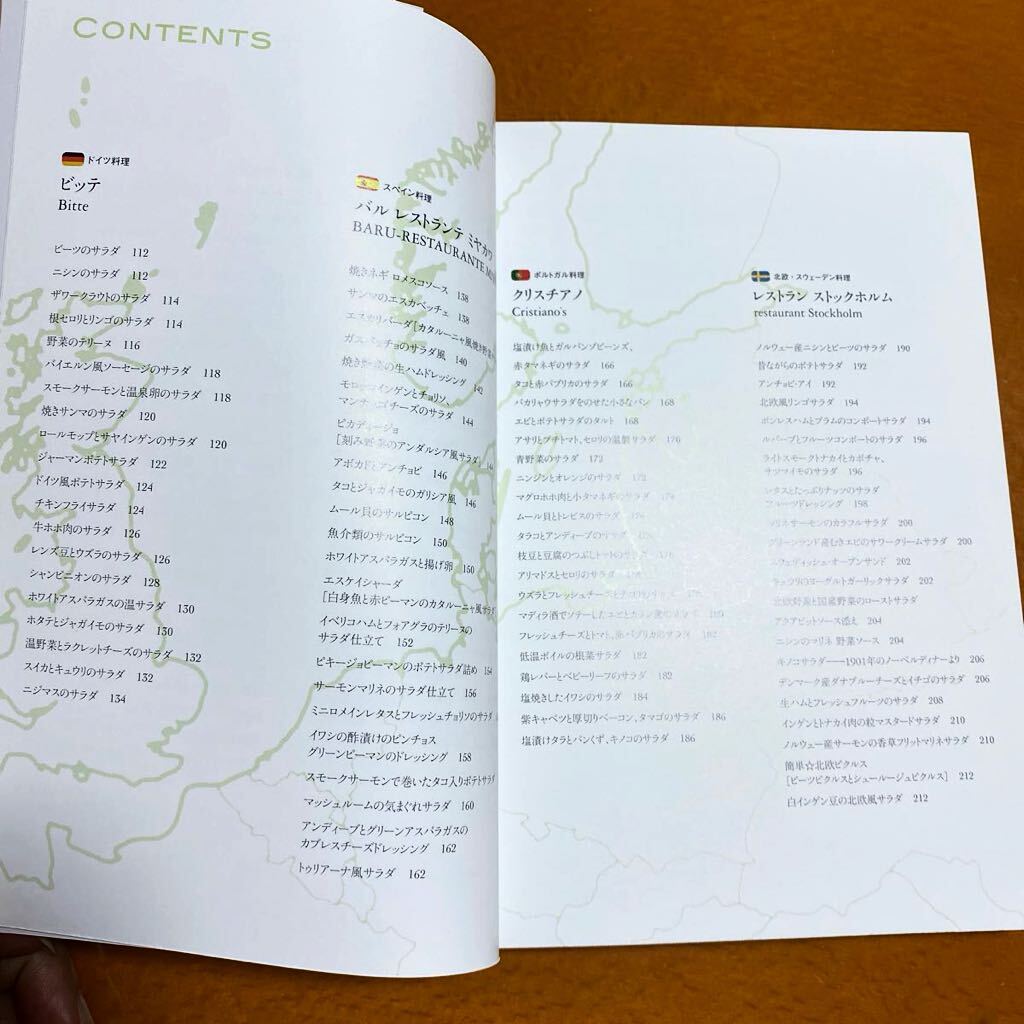 CONTENTS
ドイツ料理
ビッテ
Bitte
ビーツのサラダ 112
ニシンのサラダ 112
ザワークラウトのサラダ 114
根セロリとリンゴのサラダ 114
野菜のテリーヌ 116
バイエルン風ソーセージのサラダ 118
スモークサーモンと温泉卵のサラダ 118
焼きサンマのサラダ 120
ロールモップとサヤインゲンのサラダ 120
ジャーマンポテトサラダ 122
ドイツ風ポテトサラダ 124
チキンフライサラダ 124
牛ホホ肉のサラダ 126
レンズ豆とウズラのサラダ 126
シャンピニオンのサラダ 128
ホワイトアスパラガスの温サラダ 130
ホタテとジャガイモのサラダ 130
温野菜とラクレットチーズのサラダ 132
スイカとキュウリのサラダ 132
ニジマスのサラダ 134
スペイン料理
バル レストランテ ミヤカワ
BARU-RESTAURANTE
焼きネギ ロメスコソース 138
サンマのエスカベッチェ 138
エスカリバーダ[カタルーニャ風焼き野菜
ガスパッチョのサラダ風 140
焼き野菜の生ハムドレッシング 142
モロッコインゲンとチョリソ、
マンチェゴチーズのサラダ 144
ピカディージョ
[刻み野菜のアンダルシア風サラダ]
アボカドとアンチョビ 146
タコとジャガイモのガリシア風 146
ムール貝のサルピコン 148
魚介類のサルピコン 150
ホワイトアスパラガスと揚げ卵 150
エスケイシャーダ
[白身魚と赤ピーマンのカタルーニャ風サラダ
イベリコハムとフォアグラのテリーヌの
サラダ仕立て 152
ピキージョピーマンのポテトサラダ詰め 154
サーモンマリネのサラダ仕立て 156
ミニロメインレタスとフレッシュチョリソのサラダ
イワシの酢漬けのピンチョス
グリーンピーマンのドレッシング 158
スモークサーモンで巻いたタコ入りポテトサラダ
マッシュルームの気まぐれサラダ 160
アンディーブとグリーンアスパラガスの
カブレスチーズドレッシング 162
トゥリアーナ風サラダ 162
ポルトガル料理
クリスチアノ
Cristiano's
塩漬け魚とガルバンゾビーンズ、
赤タマネギのサラダ 166
タコと赤パプリカのサラダ 166
バカリャウサラダをのせた小さなパン 168
エビとポテトサラダのタルト 168
アサリとプチトマト、セロリの温製サラダ 170
青野菜のサラダ 172
ニンジンとオレンジのサラダ 172
マグロホホ肉と小タマネギのサラダ 174
ムール貝とトレビスのサラダ 174
タラコとアンディーブのサラダ
枝豆と豆腐のつぶしトマトのサラダ 176
アリマドスとセロリのサラダ
ウズラとフレッシュチーズと
マディラ酒でソテーした 180
フレッシュチーズとトマト、赤パプリカのサラダ 182
低温ボイルの根菜サラダ 182
鶏レバーとベビーリーフのサラダ 182
塩焼きしたイワシのサラダ 184
紫キャベツと厚切りベーコン、タマゴのサラダ 186
塩漬けタラとパンくず、キノコのサラダ 186
北欧・スウェーデン料理
レストラン ストックホルム
restaurant Stockholm
ノルウェー産ニシンとビーツのサラダ 190
昔ながらのポテトサラダ 192
アンチョビ・アイ 192
北欧風リンゴサラダ 194
ボンレスハムとプラムのコンポートサラダ 194
ルバーブとフルーツコンポートのサラダ 196
ライトスモークトナカイとカボチャ、
サツマイモのサラダ 196
レタスとたっぷりナッツのサラダ
フルーツドレッシング 198
マリネサーモンのカラフルサラダ 200
グリーンランド産むきエビのサワークリームサラダ 200
スウェディッシュ・オープンサンド 202
キュウリのヨーグルトガーリックサラダ 202
北欧野菜と国産野菜のローストサラダ
アクアビットソース添え 204
ニシンのマリネ 野菜ソース 204
キノコサラダ——1901年のノーベルディナーより 206
デンマーク産ダナブルーチーズとイチゴのサラダ 206
生ハムとフレッシュフルーツのサラダ 208
インゲンとトナカイ肉の粒マスタードサラダ 210
ノルウェー産サーモンの香草フリットマリネサラダ 210
簡単☆北欧ピクルス
[ビーツピクルスとシュールージュピクルス] 212
白インゲン豆の北欧風サラダ 212